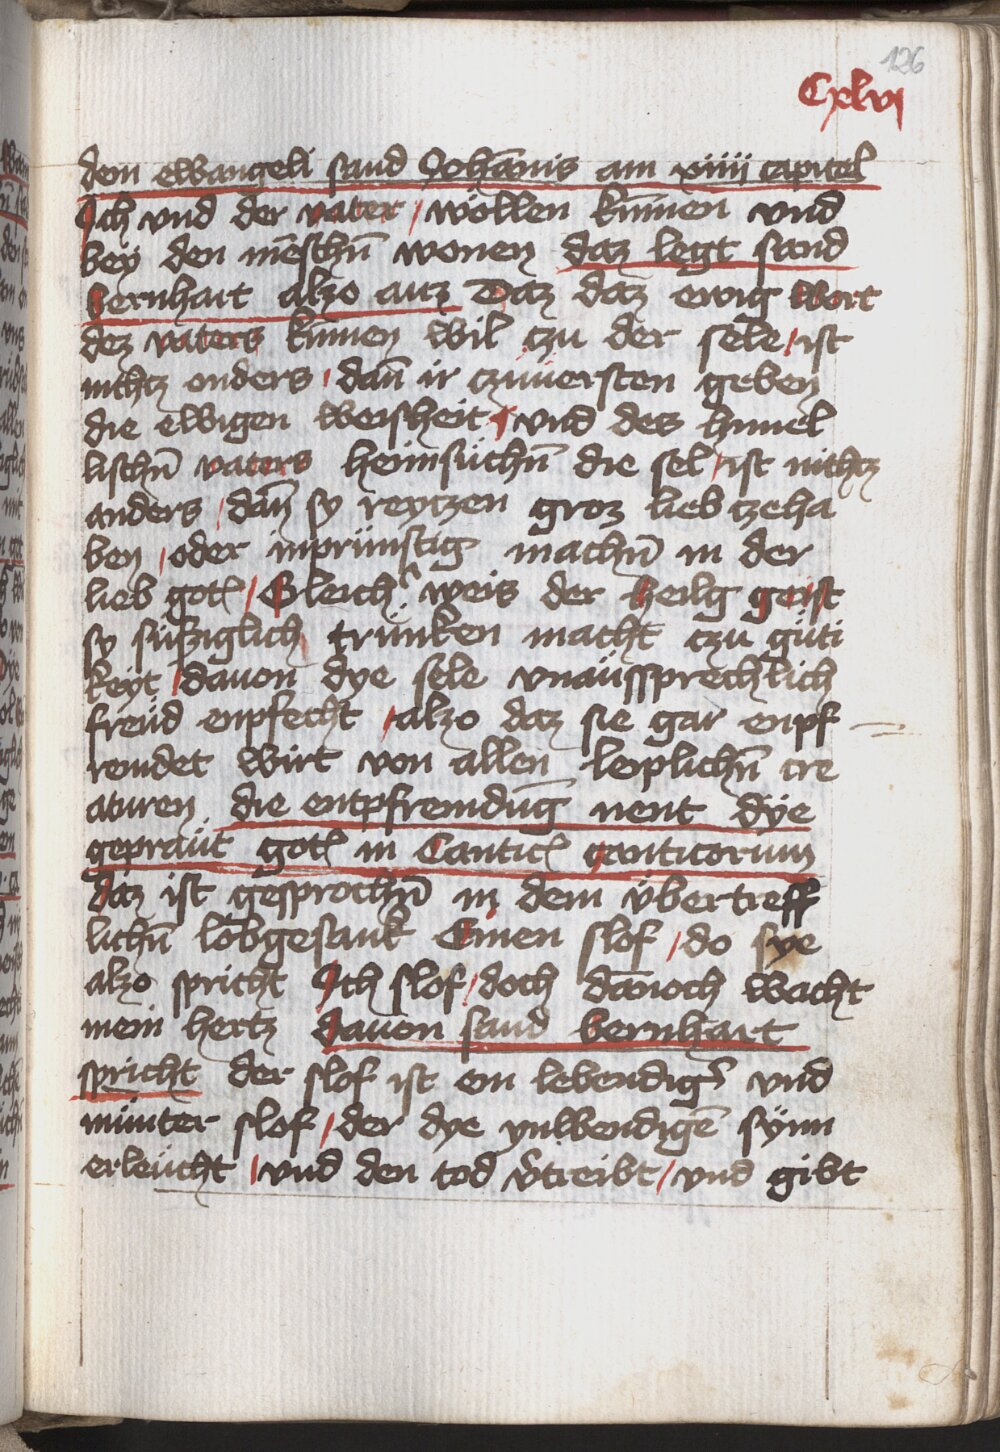 126
Cxlvj
dem ewangeli sand Johānis am xiiii capitel
Jch vnd der vater / wöllen kūmen vnd
bey den mēschn̄ wonen daz legt sand
bernhart alzo aus Daz daz ewig wort
dez vaters kūmen wil czu der sele / ist
nichtz anders / dan̄ ir czuuersten geben
die ewigen weisheit / vnd des himel
lischn̄ vaters heimsüchn̄ die sel / ist nichtz
anders / dan̄ sy reytzen groz lieb czeha
ben / oder inprünstig machn̄ in der
lieb gotz / Gleich weis der heilg geist
sy süssiglich trünken macht czu güti
keyt / dauon dye sele vnaüssprechlich
freüd enpfecht / alzo daz sie gar enpf
remdet wirt von allen leiplichn̄ cre
aturen die entpfremdūg nent dye
gepraüt gotz in Canticis canticorum
daz ist gesprochn̄ in dem übertreff
lichn̄ lobgesank Einen slof / do sye
alzo spricht Jch slof / doch dānoch wacht
mein hertz dauon sand bernhart
spricht der slof ist ein lebendig' vnd
münter slof / der dye ynwendigē synn
erleücht / vnd den tod v̾treibt / vnd gibt